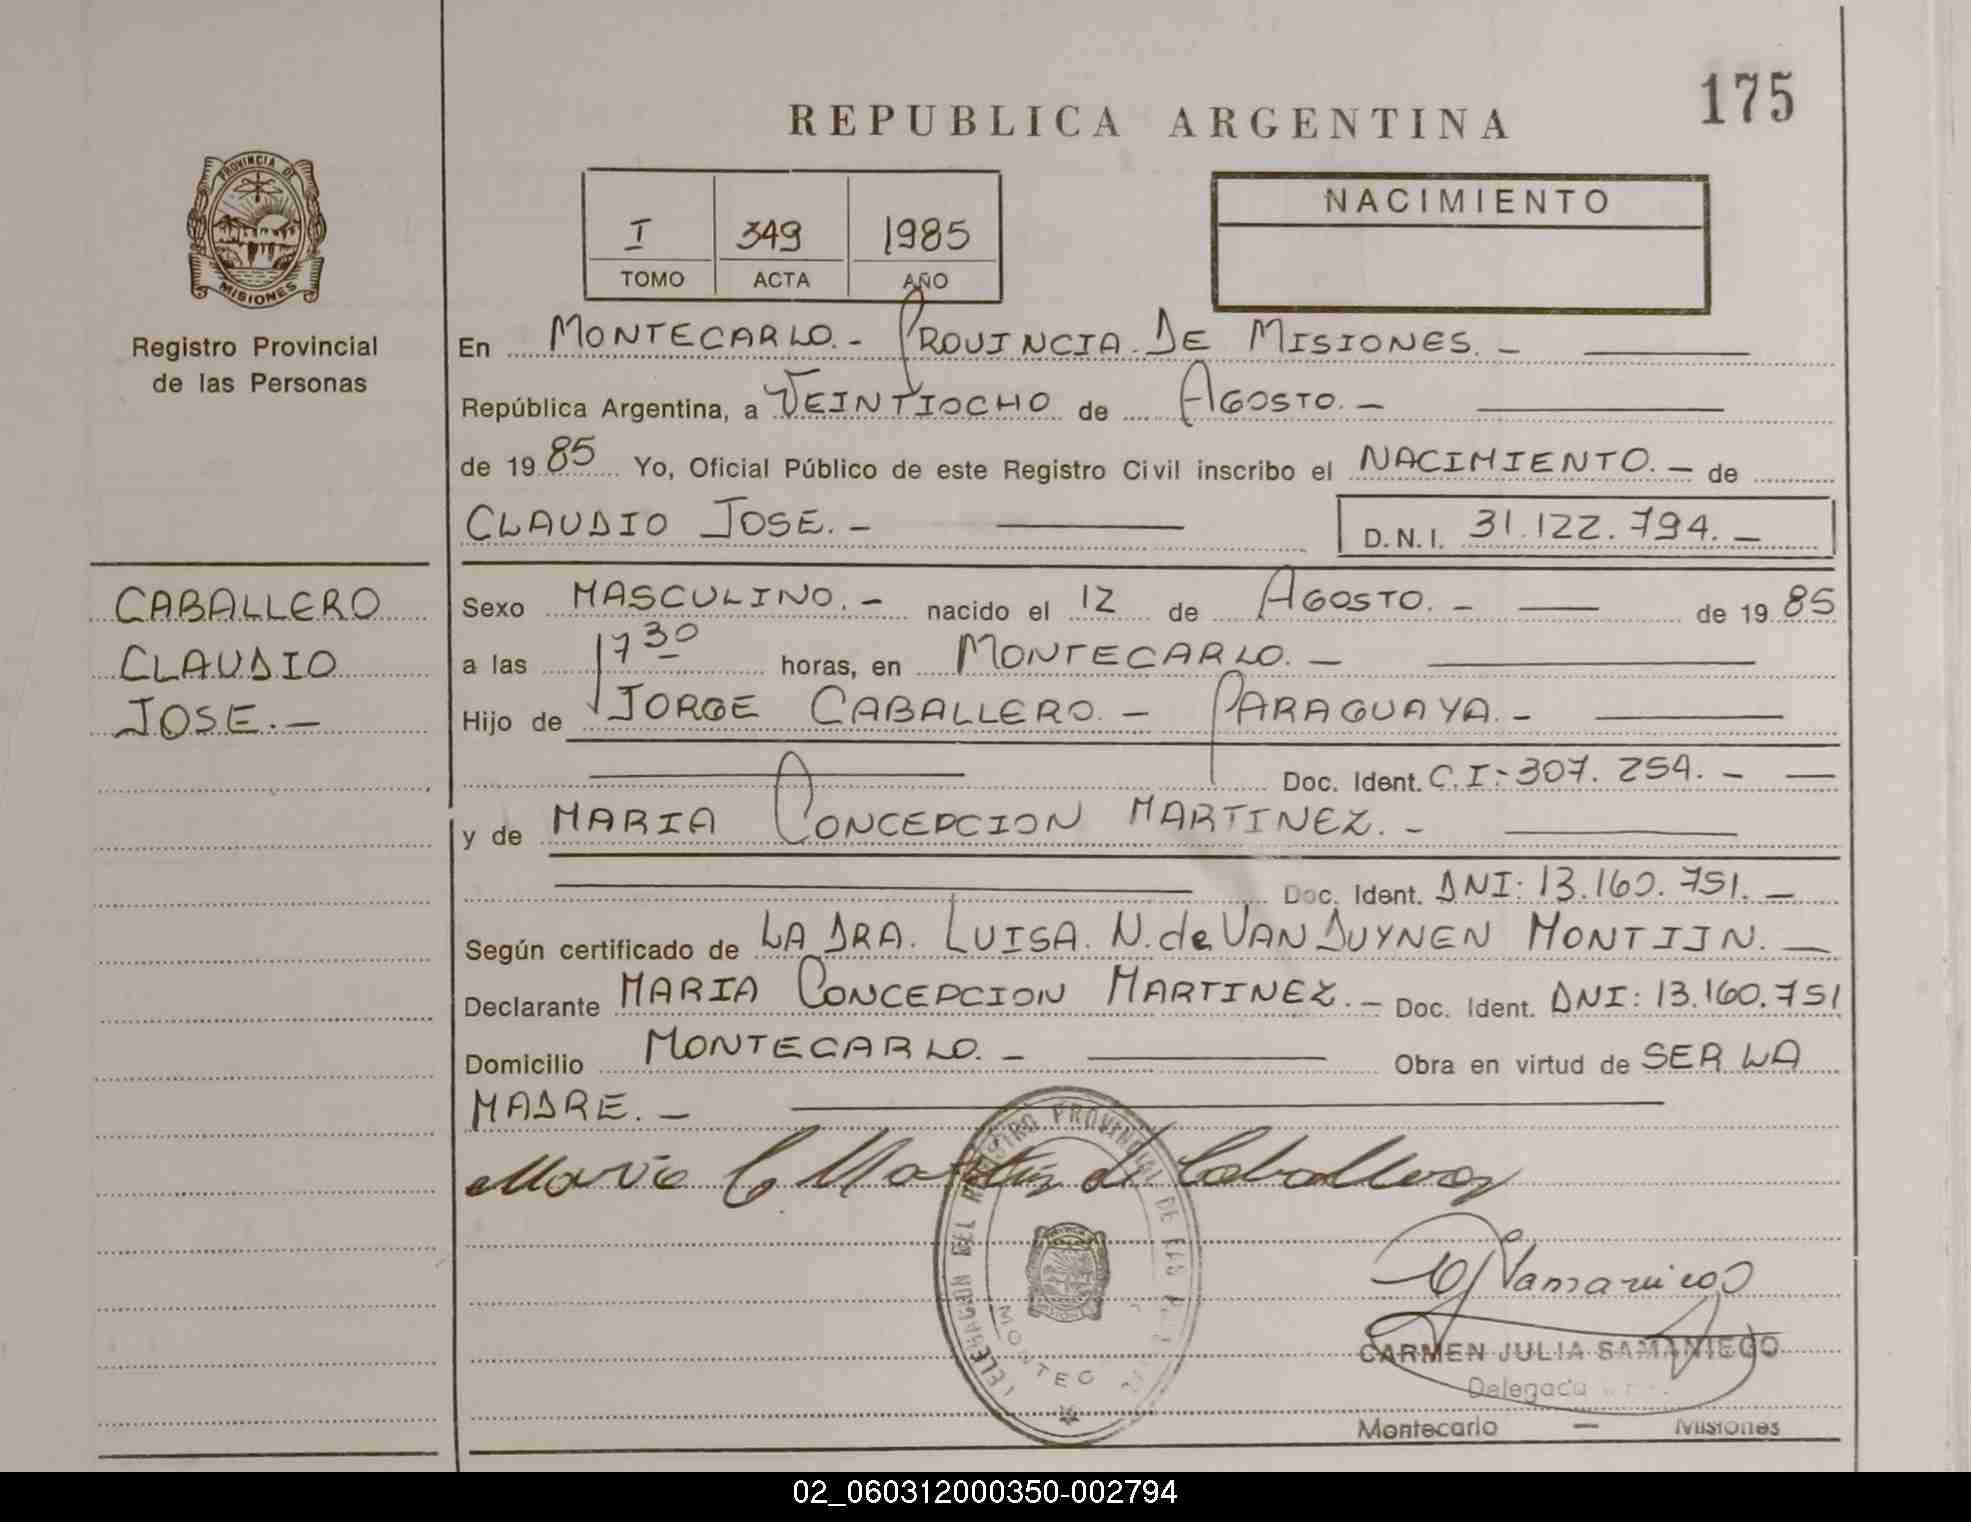 175
REPUBLICA ARGENTINA
PROVINCIA DE
MISIONES
Registro Provincial
de las Personas
I 349 1985
TOMO ACTA AÑO
NACIMIENTO
En MONTECARLO.- PROVINCIA DE MISIONES.-
República Argentina, a VEINTIOCHO de AGOSTO.-
de 1985 Yo, Oficial Público de este Registro Civil inscribo el NACIMIENTO.- de
CLAUDIO JOSE.- D.N.I. 31.122.794.-
CABALLERO
CLAUDIO
JOSE.-
Sexo MASCULINO.- nacido el 12 de AGOSTO.- de 1985
a las 17 30 horas, en MONTECARLO.-
Hijo de JORGE CABALLERO.- PARAGUAYA.-
Doc. Ident. C.I:-307.254.-
y de MARIA CONCEPCION MARTINEZ.-
Doc. Ident. DNI: 13.160.751.-
Según certificado de LA DRA. LUISA. N. de VAN DUYNEN MONTIJN.-
Declarante MARIA CONCEPCION MARTINEZ.- Doc. Ident. DNI: 13.160.751
Domicilio MONTECARLO.- Obra en virtud de SER LA
MADRE.-
Maria C Martinez de Caballero
DELEGACION DEL REGISTRO PROVINCIAL DE LAS
MONTEC
CARMEN JULIA SAMANIEGO
Delegada
Montecarlo - Misiones
02_060312000350-002794